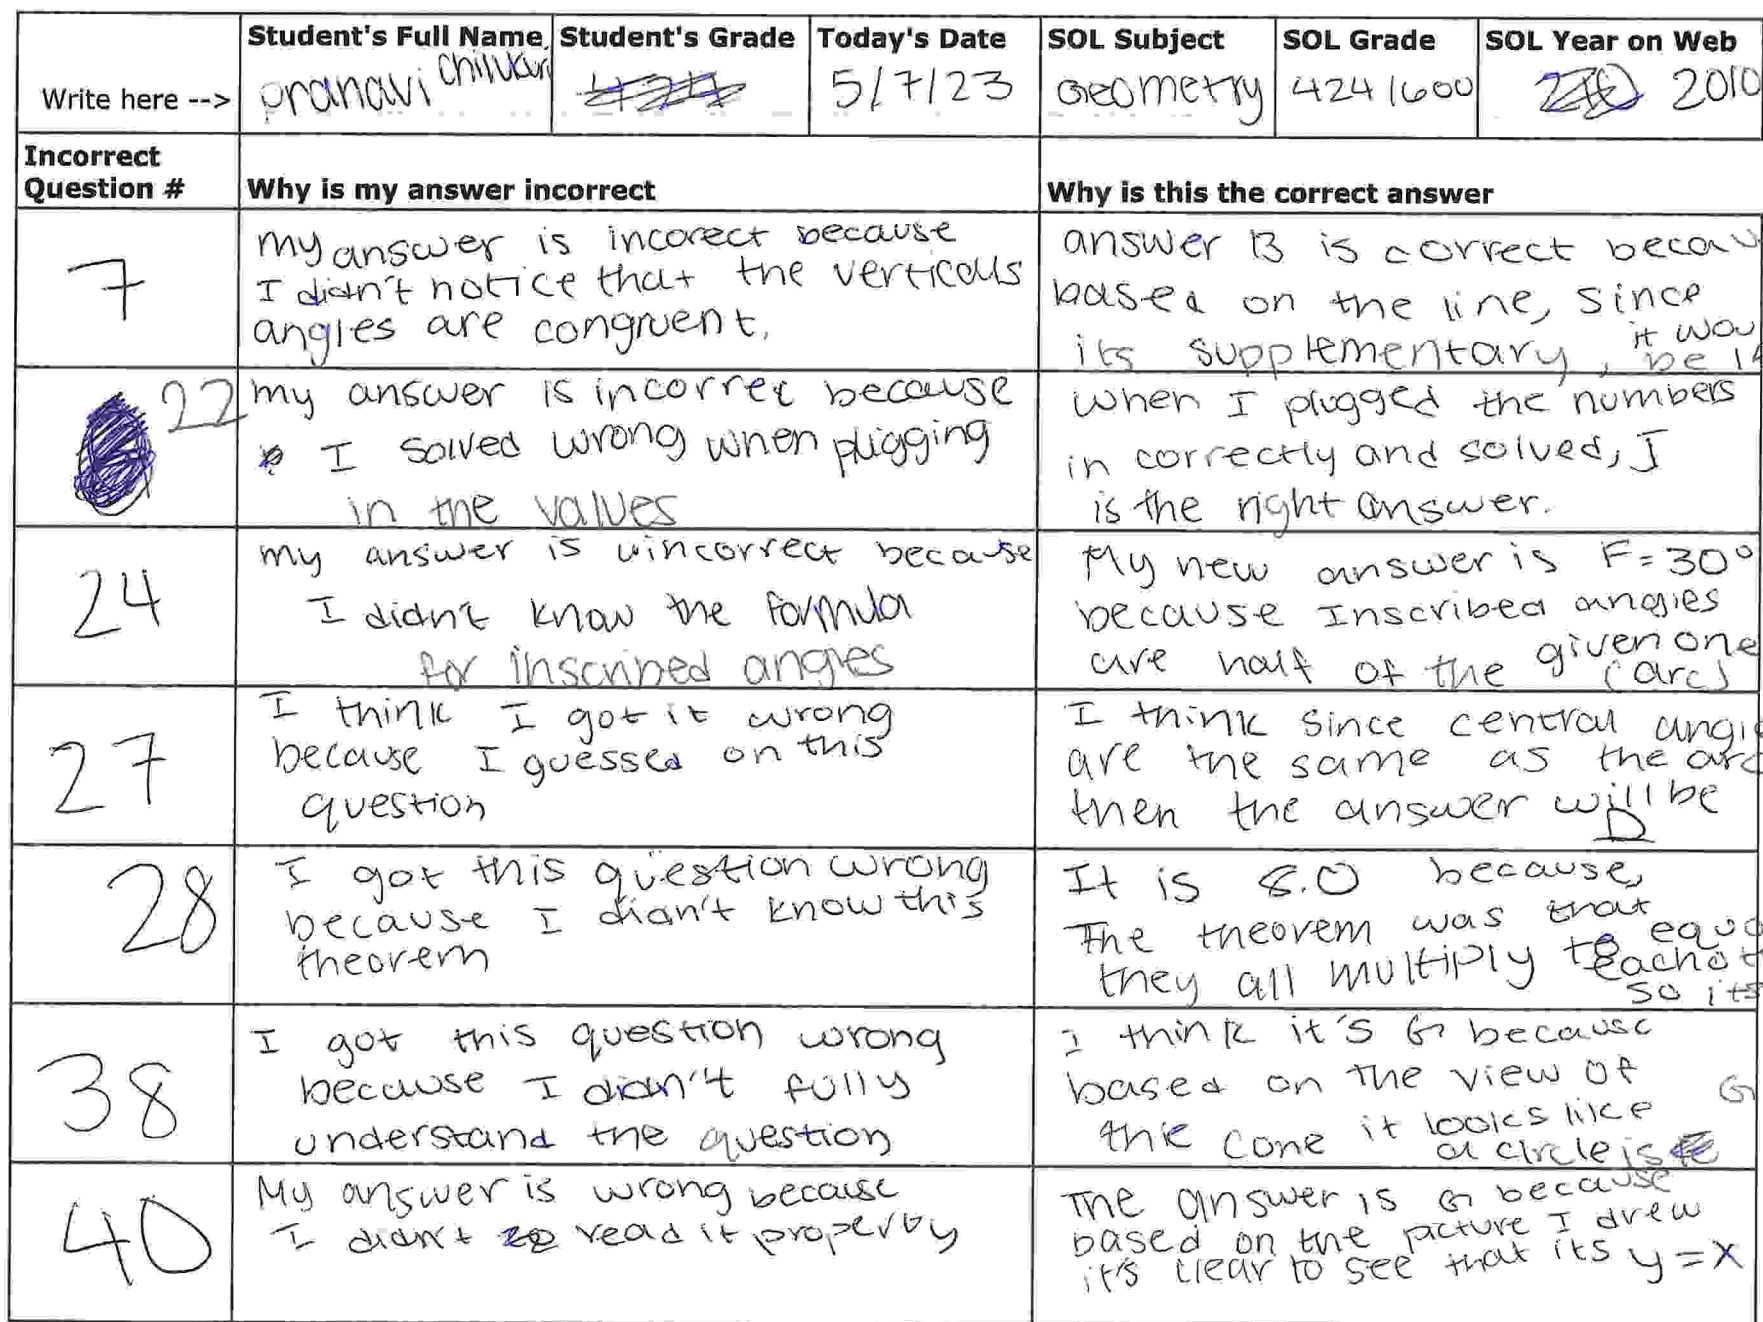 Student's Full Name Student's Grade Today's Date SOL Subject SOL Grade SOL Year on Web
Write here --> pranavi 5/7/23 Geometry 424/600 2010
Incorrect
Question # Why is my answer incorrect Why is this the correct answer
7
my answer is incorect because
I didn't notice that the verticals
angles are congruent.
answer B is correct becau
based on the line, since
its supplementary, it wou
be 14
22
my answer is incorrect because
I solved wrong when pligging
in the values
when I plugged the numbers
in correctly and solved, J
is the right answer.
24
my answer is incorrect because
I didn't know the formula
for inscribed angles
My new answer is F = 30°
because Inscribed angles
are half of the given one
(arc)
27
I think I got it wrong
because I guessed on this
question
I think since central angle
are the same as the arc
then the answer will be
D
28
I got this question wrong
because I didn't know this
theorem
It is 8.0 because,
The theorem was that
they all multiply to equa
eachot
so its
38
I got this question wrong
because I didn't fully
understand the question
I think it's G because
based on the view of
the cone it looks like G
a circle is
40
My answer is wrong because
I didn't read it property
The answer is G because
based on the picture I drew
it's clear to see that its y = x